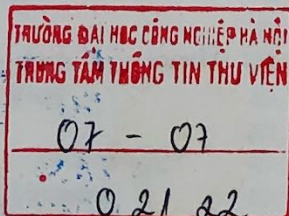 TRƯỜNG ĐẠI HỌC CÔNG NGHIỆP HÀ NỘI
TRUNG TÂM THÔNG TIN THƯ VIỆN
07 - 07
0 21 22